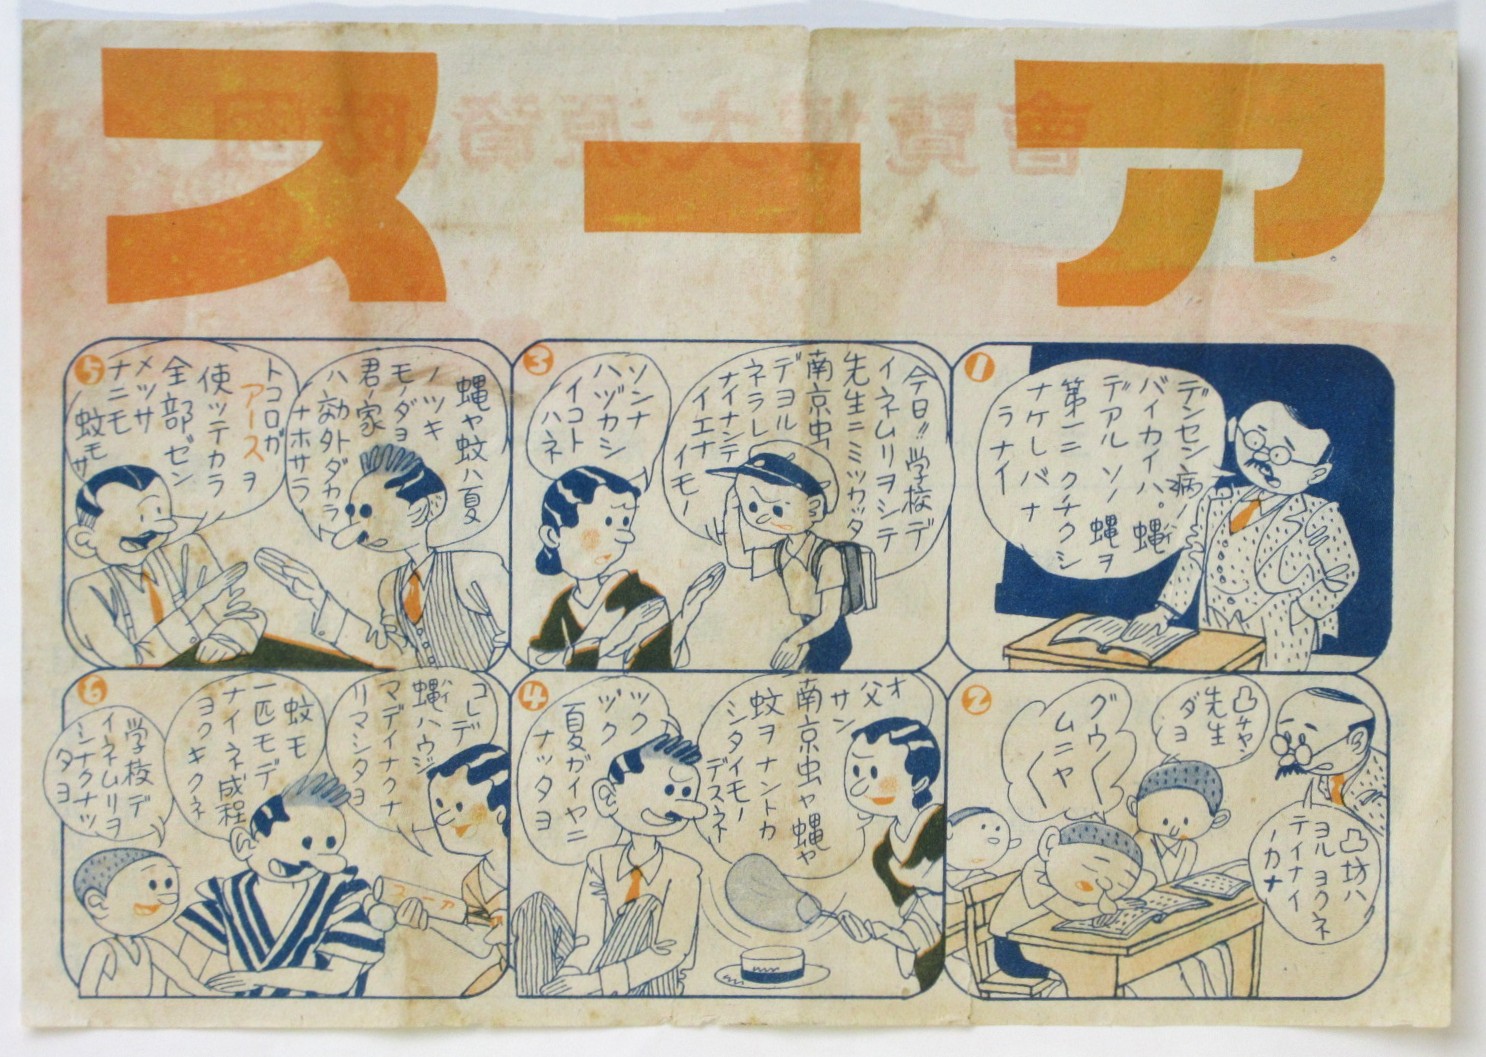 アース
1
デンセン病ノ
バイカイハ。蝿
デアル ソノ 蝿ヲ
第一ニ クチクシ
ナケレバ ナ
ラナイ
2
凸チャン
先生
ダヨ
グウ〱
ムニャ〱
凸坊ハ
ヨル ヨクネ
テイナイ
ノカナ
3
今日!!学校デ
イネムリヲシテ
先生ニミツカツタ
南京虫
デヨル
ネラレ
ナイナンテ
イエナ
イモノ
ソンナ
ハヅカシ
イコト
ハネ
4
オ
父
サン
南京虫ヤ蝿ヤ
蚊ヲナントカ
シタイモノ
デスネ
ツク
ヅク
夏ガイヤニ
ナツタヨ
5
蝿ヤ蚊ハ夏
ノツキ
モノダヨ
君ノ家
ハ郊外ダカラ
ナホサラ
トコロガ
アースヲ
使ツテカラ
全部ゼン
メツサ
ナニモ
蚊モサ
6
コレデ
蝿ハウジ
マデイナクナ
リマシタヨ
蚊モ
一匹モデ
ナイネ成程
ヨクキクネ
学校デ
イネムリヲ
シナクナツ
タヨ
アース
國防資源大博覽會